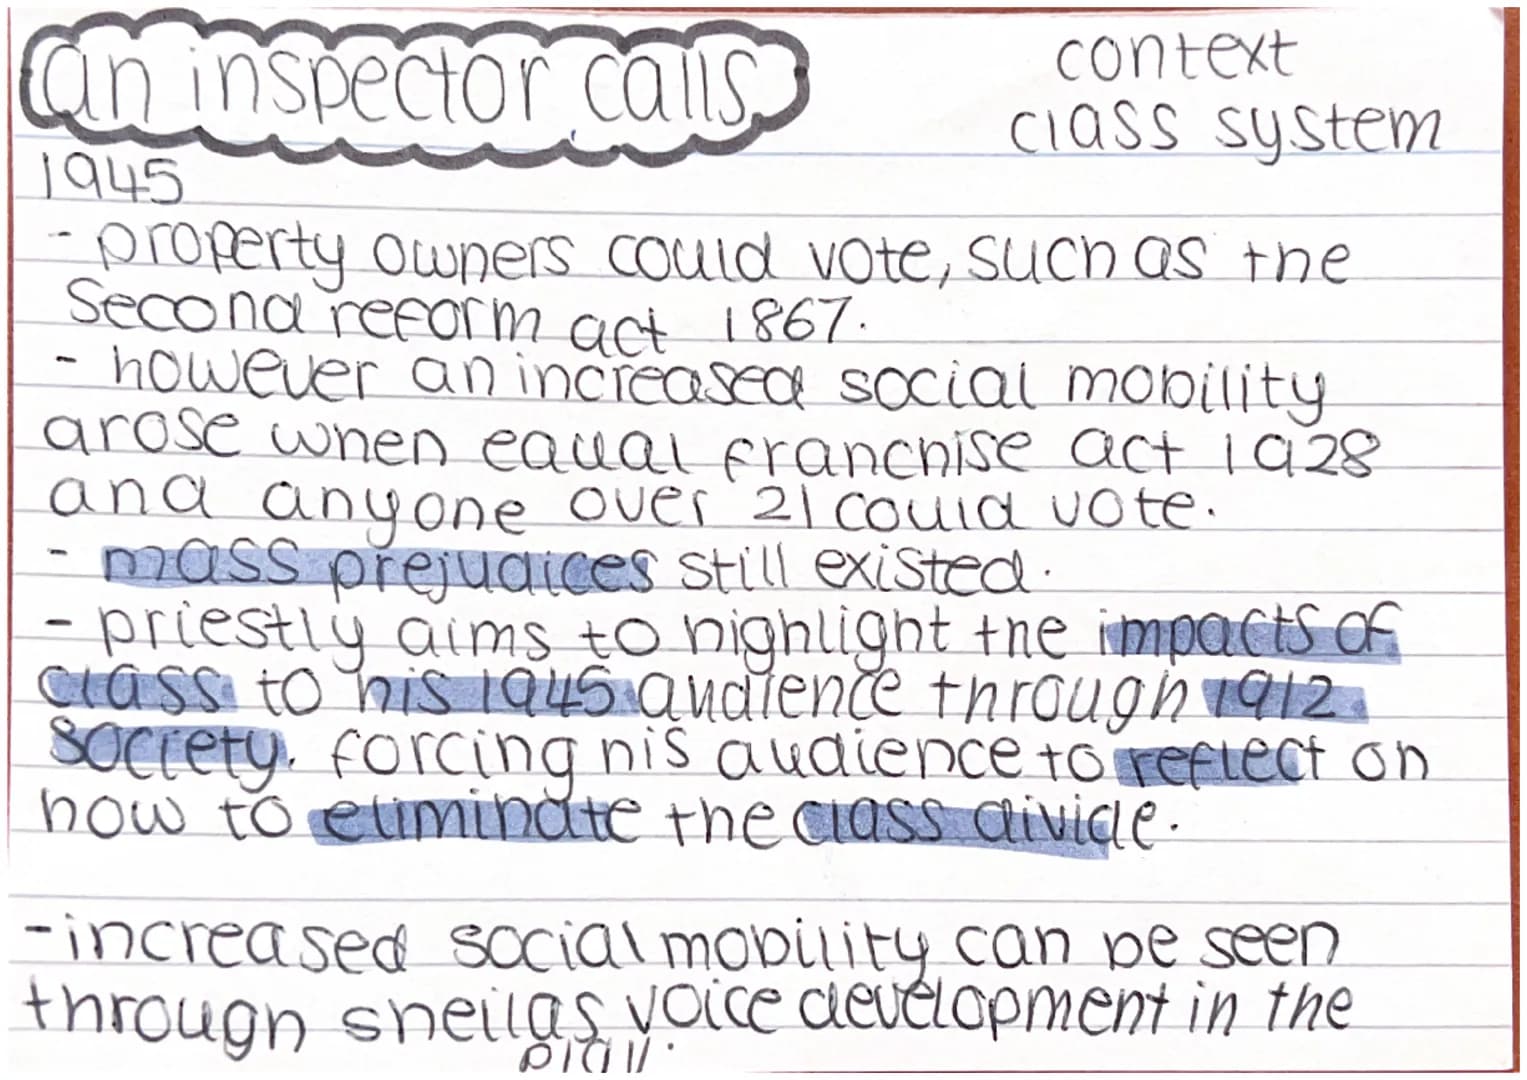 an inspector calls
context
class system
1945
- property owners could vote, such as the
Second reform act 1867.
- however an increased social mobility
arose when equal franchise act 1928
and anyone over 21 could vote.
- mass prejudices still existed.
- priestly aims to highlight the impacts of
class to his 1945 audience through 1912
society. forcing his audience to reflect on
how to eliminate the class divide.
- increased social mobility can be seen
through sheilas voice development in the
play.